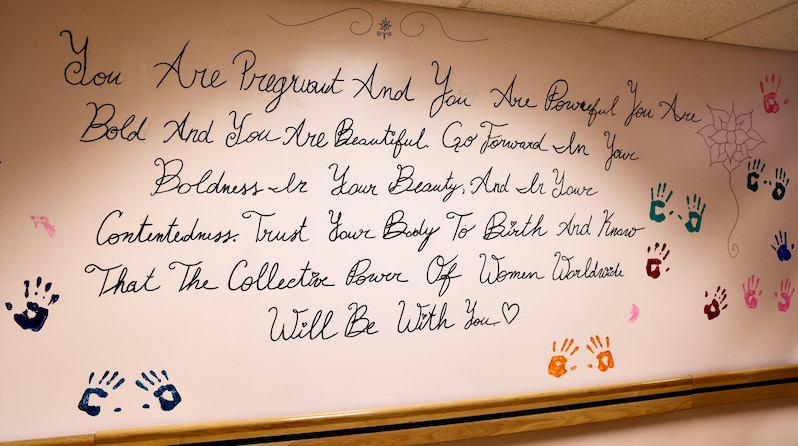 You Are Pregnant And You Are Powerful. You Are
Bold And You Are Beautiful. Go Forward In Your
Boldness In Your Beauty, And In Your
Contentedness. Trust Your Body To Birth And Know
That The Collective Power Of Women Worldwide
Will Be With You.♡